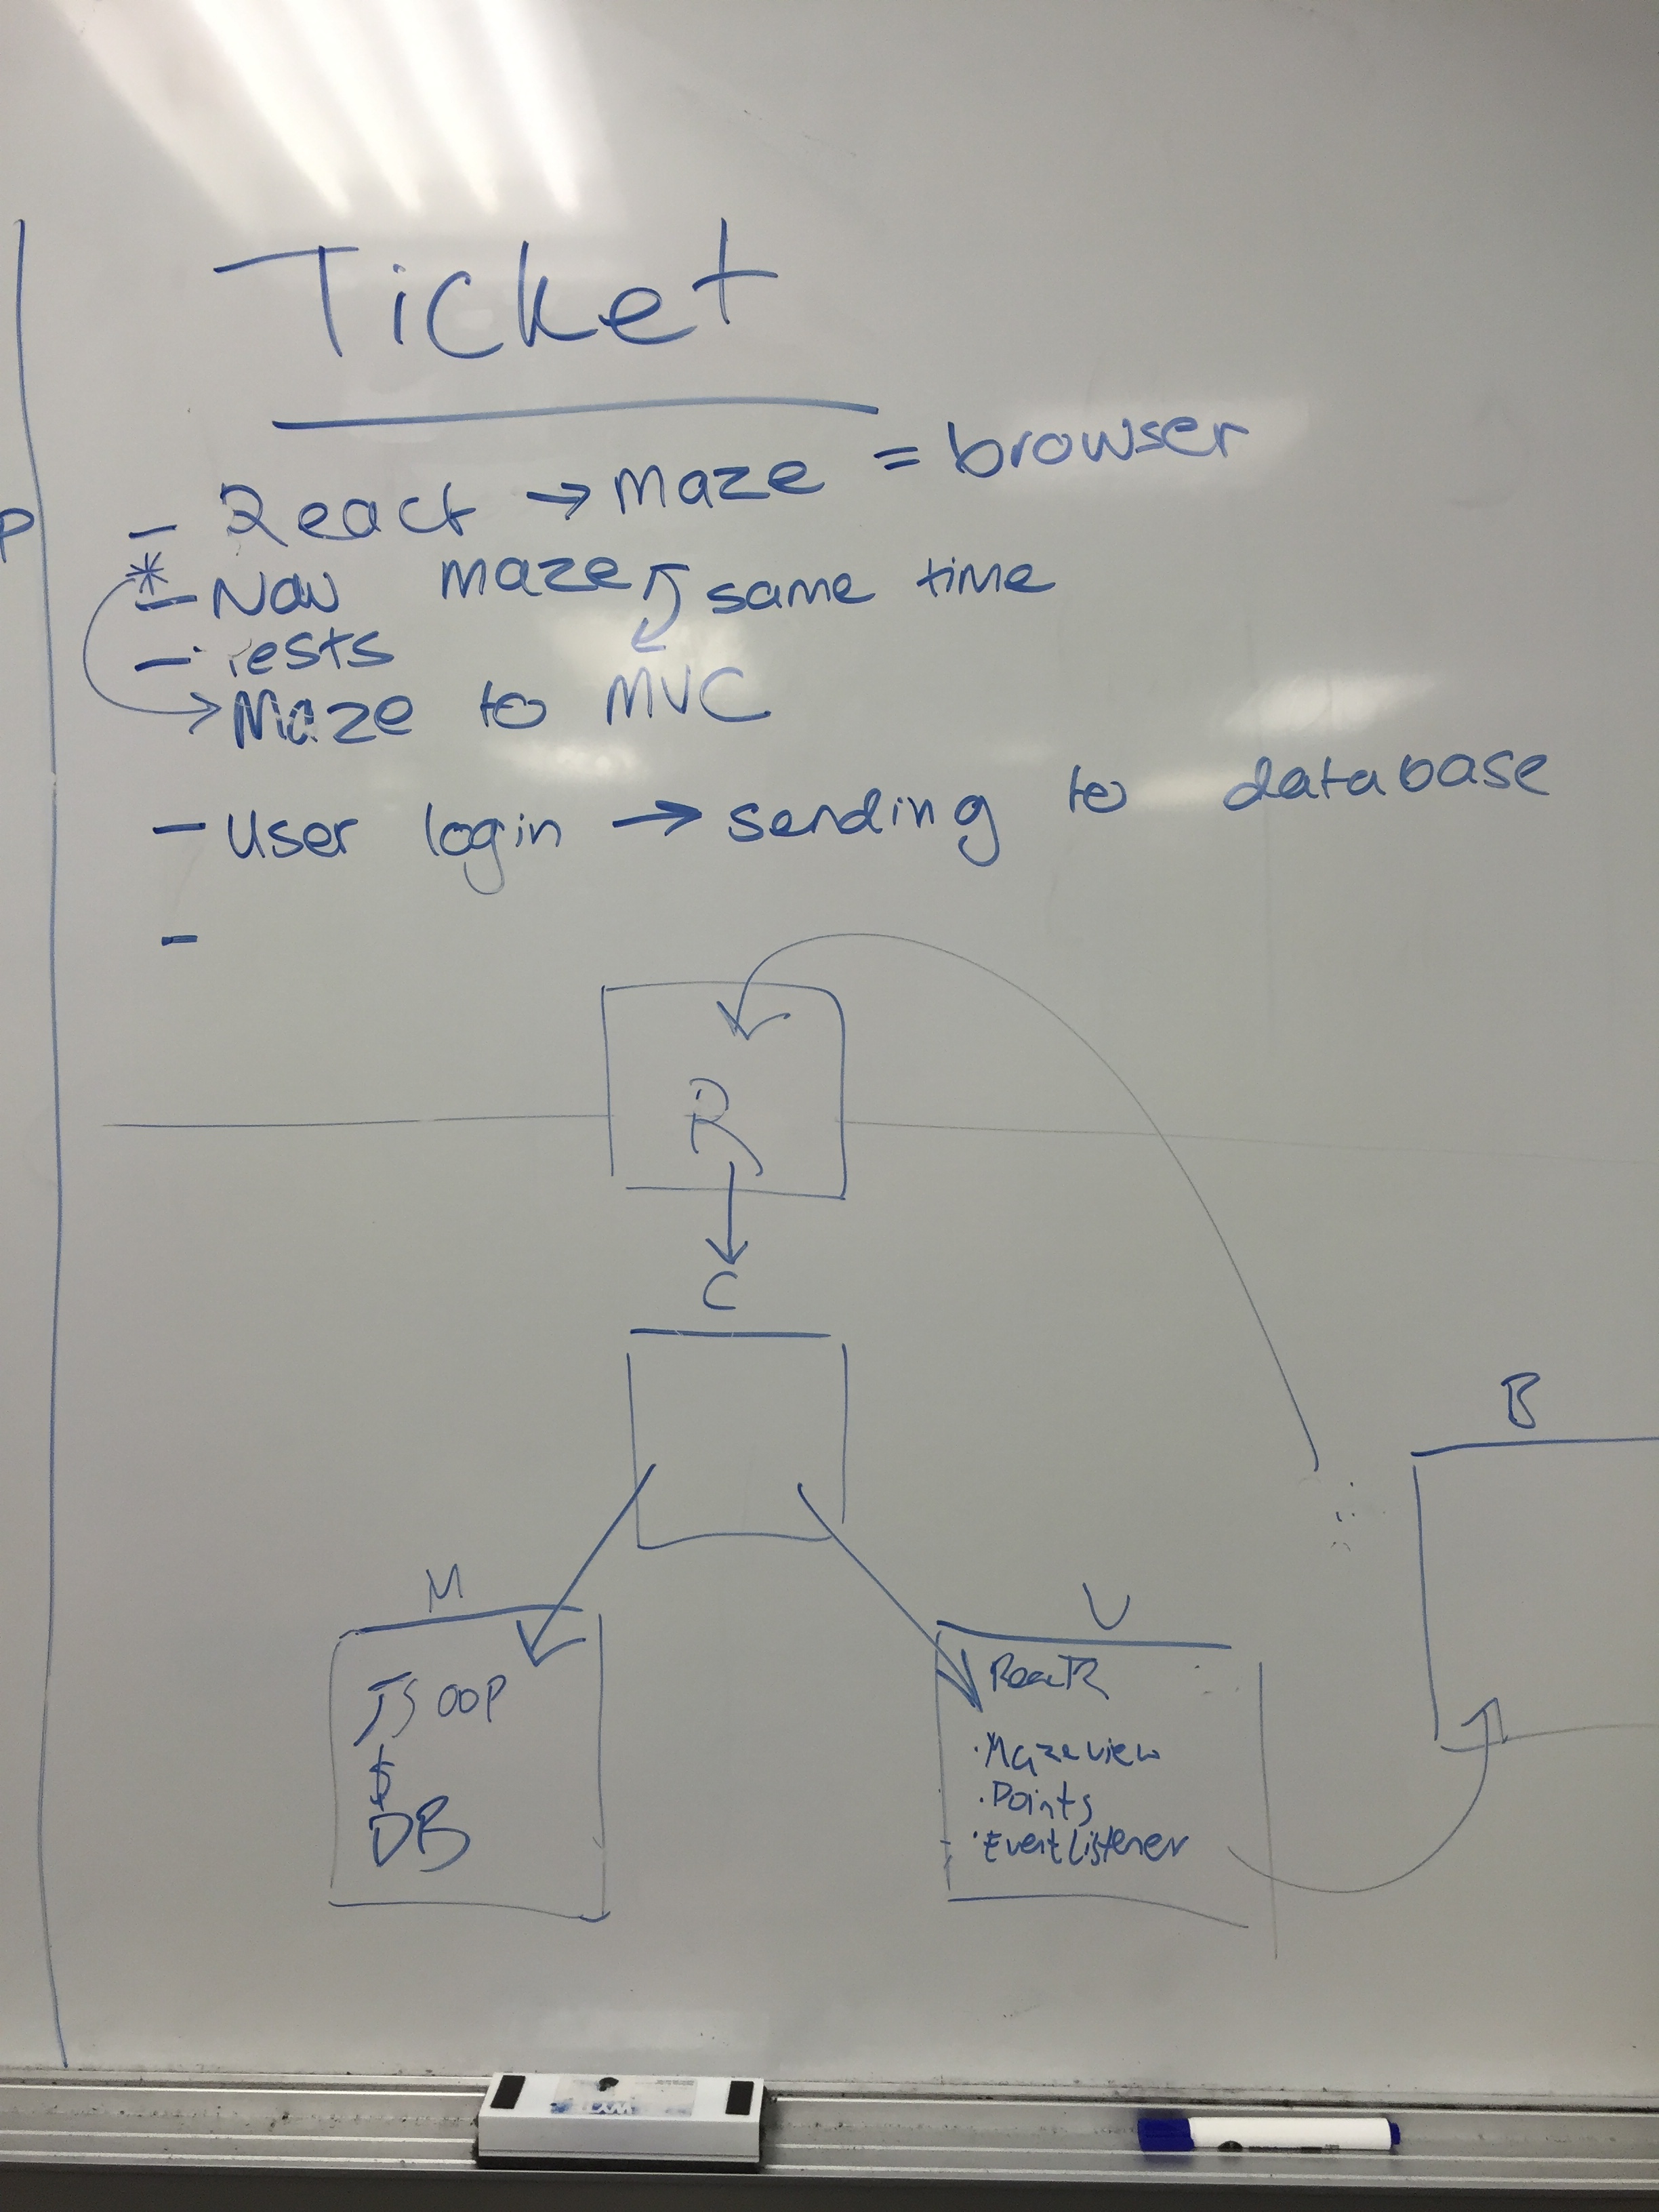 Ticket
- React → Maze = browser
P
* - Nav maze same time
- Tests
→ Maze to MVC
- User login → sending to database
-
R
C
B
M
V
JS OOP
$
DB
· Mazeview
· Points
· Event Listener